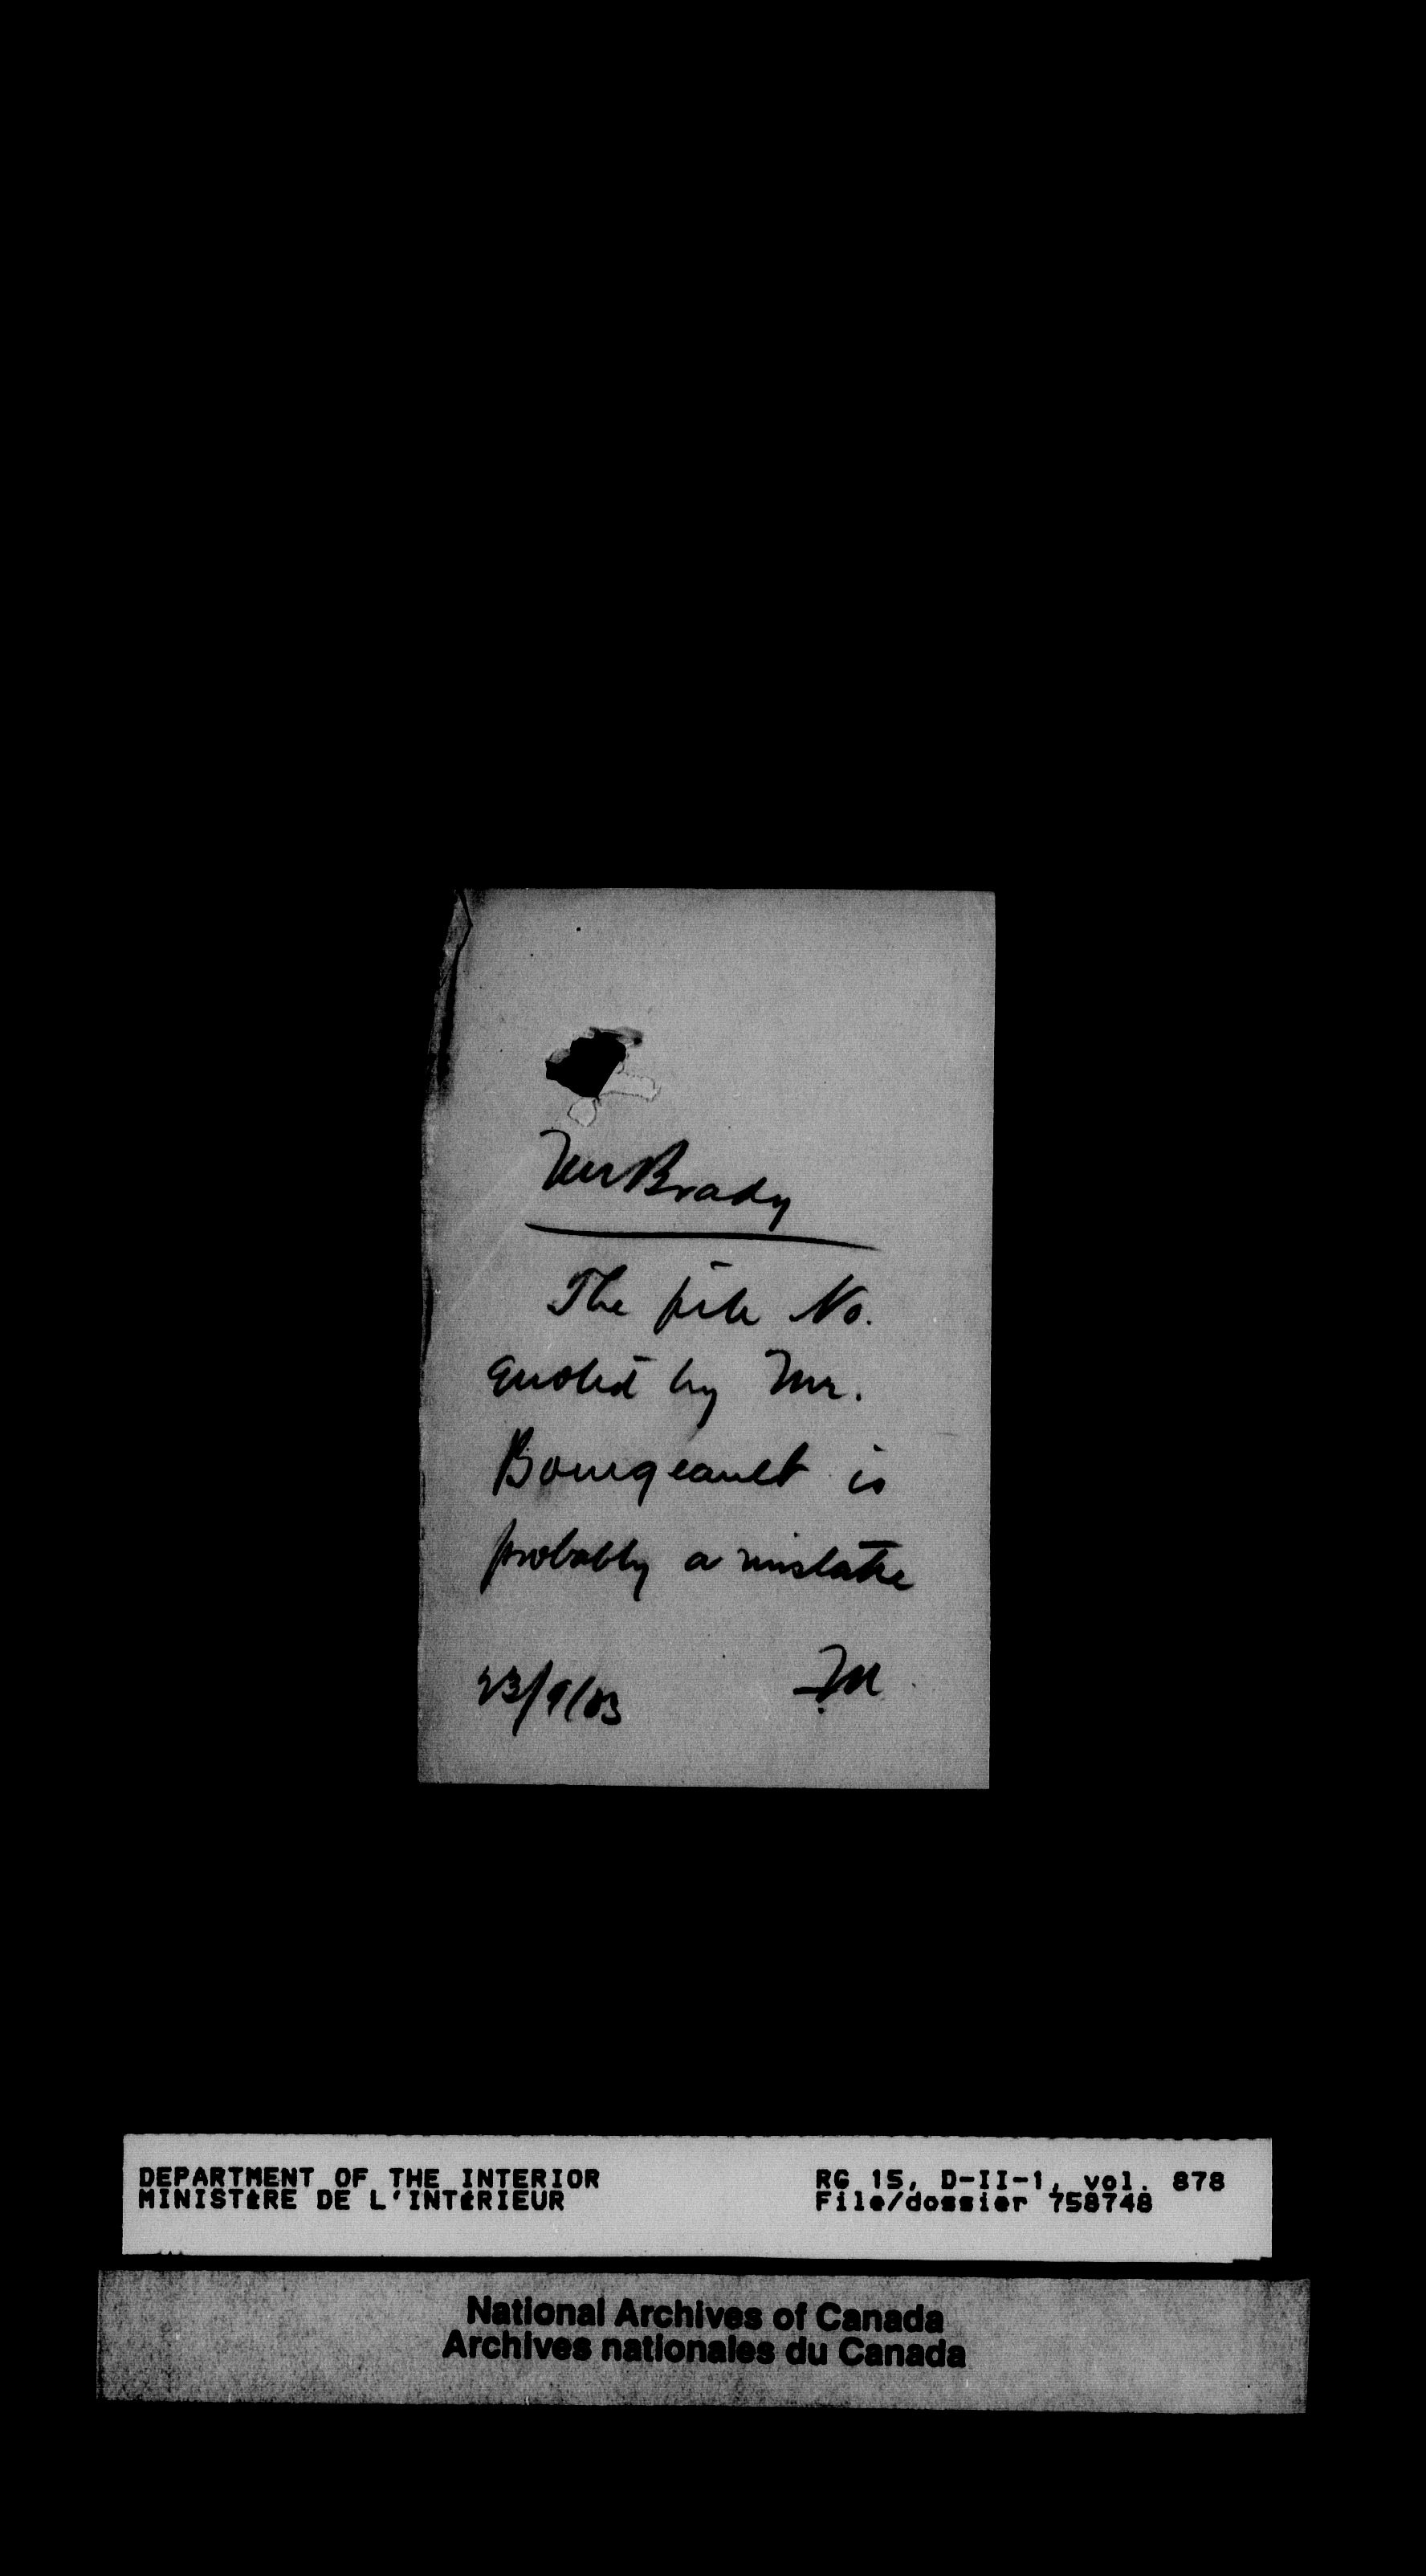 Mr Brady
The file No.
quoted by Mr.
Bourgeault is
probably a mistake
M
23/9/03
DEPARTMENT OF THE INTERIOR RG 15, D-II-1, vol. 878
MINISTÈRE DE L'INTÉRIEUR File/dossier 758748
National Archives of Canada
Archives nationales du Canada